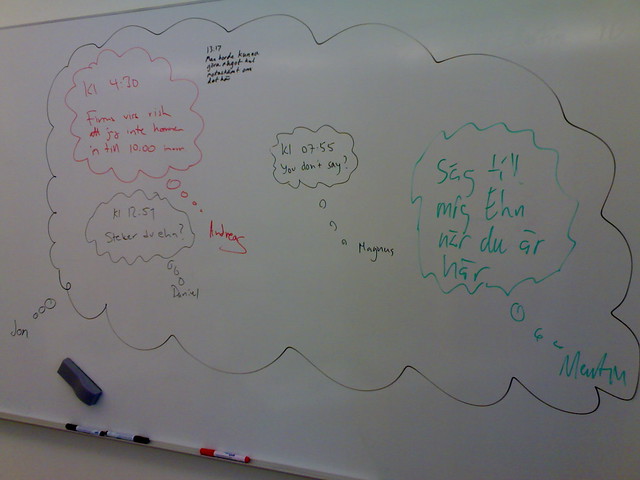 13:17
Man borde kunna
göra något kul
det här
Kl 4:30
Finns viss risk
att jag inte kommer
in till 10:00 imorn
Andreas
Kl 12:59
Steker du ehn?
Daniel
Jon
Kl 07:55
You don't say?
Magnus
Säg till
mig Ehn
när du är
här
Martin